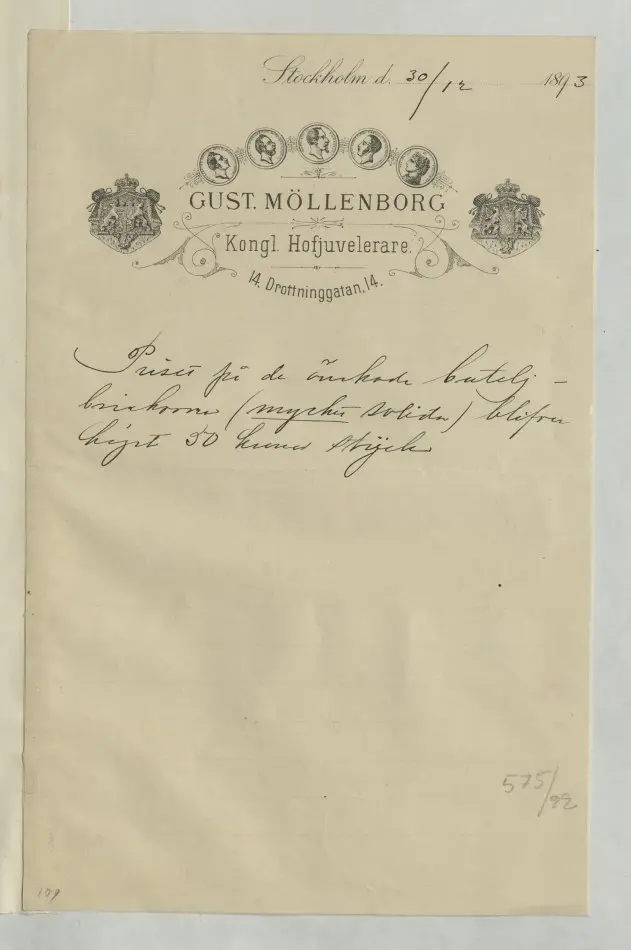 Stockholm d. 30/12 1893
GUST. MÖLLENBORG
Kongl. Hofjuvelerare.
14. Drottninggatan, 14.
Priset på de önskade butelj-
brickorna (mycket solida) blifver
högst 50 kronor stycke
575/92
109